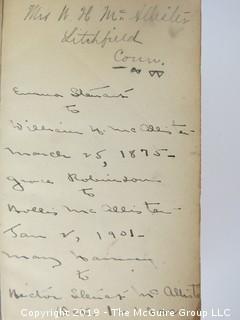 Mrs W. H. McAllister
Litchfield
Conn.
Emma Stewart
to
William H. McAllister
March 25, 1875-
Grace Robinson
to
Hollis McAllister
Jan 2, 1901-
Mary
to
Hector Stewart McAllister
Copyright 2019 - The McGuire Group LLC